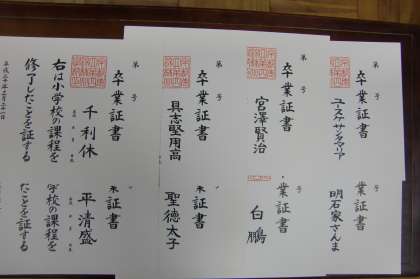 第 号
卒業証書
ユースケサンタマリア
第 号
卒業証書
宮澤賢治
第 号
卒業証書
具志堅用高
第 号
卒業証書
千利休
右は小学校の課程を
修了したことを証する
号
業証書
明石家さんま
号
業証書
白鵬
号
証書
聖徳太子
号
証書
平清盛
学校の課程を
たことを証する